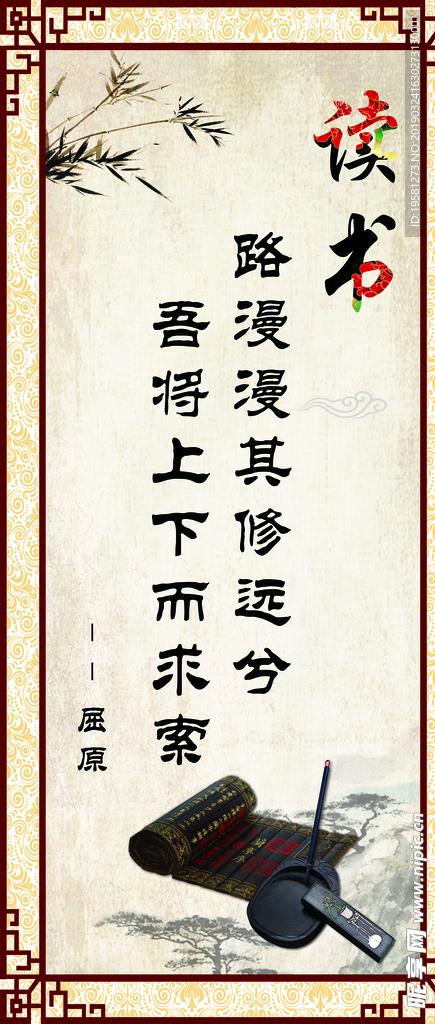 读书
路漫漫其修远兮
吾将上下而求索
——屈原
ID:19581273 NO:20190324163027313000
昵享网 www.nipic.cn